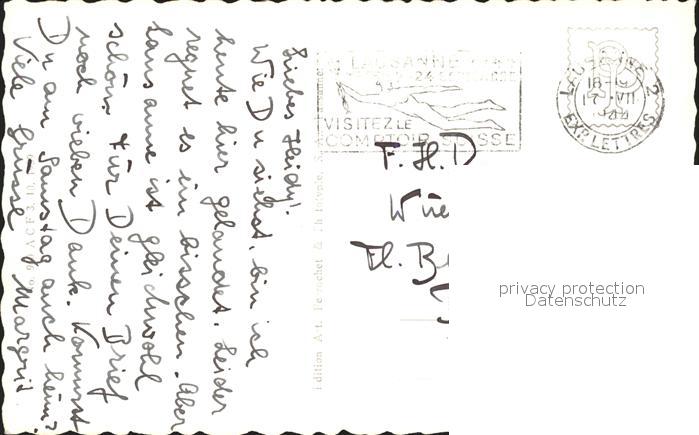 Liebes Heidy!
Wie Du siehst, bin ich
heute hier gelandet. Leider
regnet es ein bisschen. Aber
Lausanne ist gleichwohl
schön. Für Deinen Brief
noch vielen Dank. Kommst
Du am Samstag auch heim?
Viele Grüsse Margrit.
LAUSANNE
VISITEZ LE
COMPTOIR SUISSE
LAUSANNE 2
17. VII
EXP. LETTRES
F. H. D
Wie
privacy protection
Datenschutz